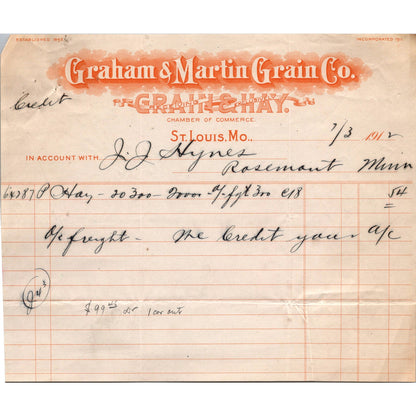 ESTABLISHED
INCORPORATED 1911
Graham & Martin Grain Co.
GRAIN & HAY.
CHAMBER OF COMMERCE.
Credit
ST. LOUIS, MO., 7/3 1912
IN ACCOUNT WITH J. J. Hynes
Rosemount Minn
P Hay - 20300 - 20000 - o/c fgt 300 @18 54
o/c freight - We Credit your a/c
$99.45 Dr 1 car oats